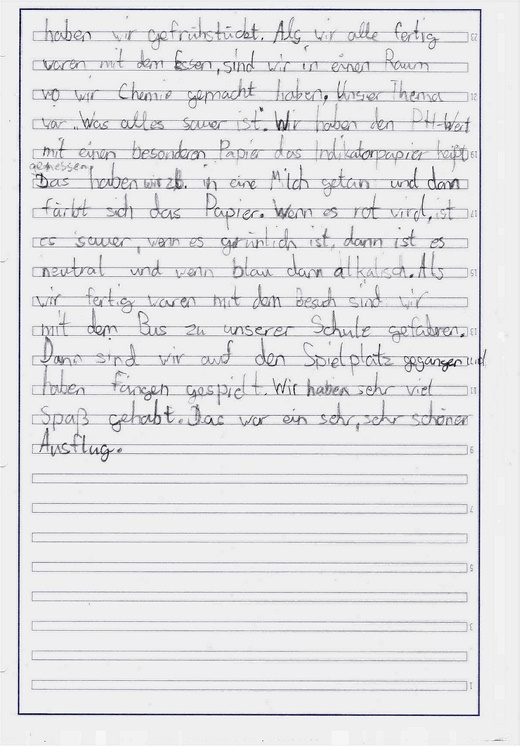 haben wir gefrühstückt. Als wir alle fertig
waren mit dem Essen, sind wir in einen Raum
wo wir Chemie gemacht haben. Unser Thema
war „Was alles sauer ist". Wir haben den PH-Wert
mit einen besonderen Papier das Indikatorpapier heißt
gemessen
Das haben wir z.b. in eine Milch getan und dann
färbt sich das Papier. Wenn es rot wird, ist
es sauer, wenn es grünlich ist, dann ist es
neutral und wenn blau dann alkalisch. Als
wir fertig waren mit dem Besuch sind wir
mit dem Bus zu unserer Schule gefahren.
Dann sind wir auf den Spielplatz gegangen und
haben Fangen gespielt. Wir haben sehr viel
Spaß gehabt. Das war ein sehr, sehr schöner
Ausflug.